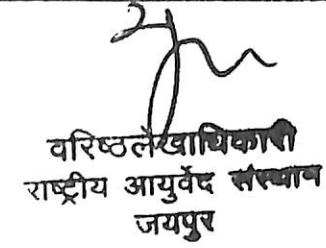 वरिष्ठलेखाधिकारी
राष्ट्रीय आयुर्वेद संस्थान
जयपुर